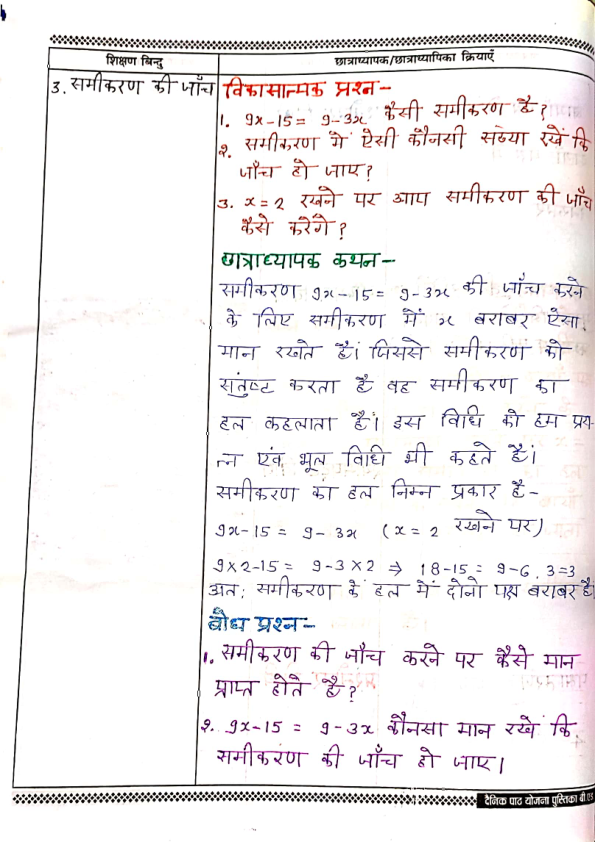 शिक्षण बिन्दु
छात्राध्यापक/छात्राध्यापिका क्रियाएँ
3. समीकरण की जाँच
विकासात्मक प्रश्न-
1. 9x-15 = 9-3x कैसी समीकरण है?
2. समीकरण में ऐसी कौनसी संख्या रखें कि
जाँच हो जाए?
3. x = 2 रखने पर आप समीकरण की जाँच
कैसे करेंगे?
छात्राध्यापक कथन-
समीकरण 9x-15 = 9-3x की जाँच करने
के लिए समीकरण में x बराबर ऐसा
मान रखते हैं। जिससे समीकरण को
संतुष्ट करता है वह समीकरण का
हल कहलाता है। इस विधि को हम प्रय-
त्न एंव भूल विधि भी कहते हैं।
समीकरण का हल निम्न प्रकार है-
9x-15 = 9-3x (x = 2 रखने पर)
9×2-15 = 9-3×2 ⇒ 18-15 = 9-6, 3=3
अत: समीकरण के हल में दोनो पक्ष बराबर है।
बोध प्रश्न-
1. समीकरण की जाँच करने पर कैसे मान
प्राप्त होते है?
2. 9x-15 = 9-3x कौनसा मान रखें कि
समीकरण की जाँच हो जाए।
दैनिक पाठ योजना पुस्तिका बी.एड